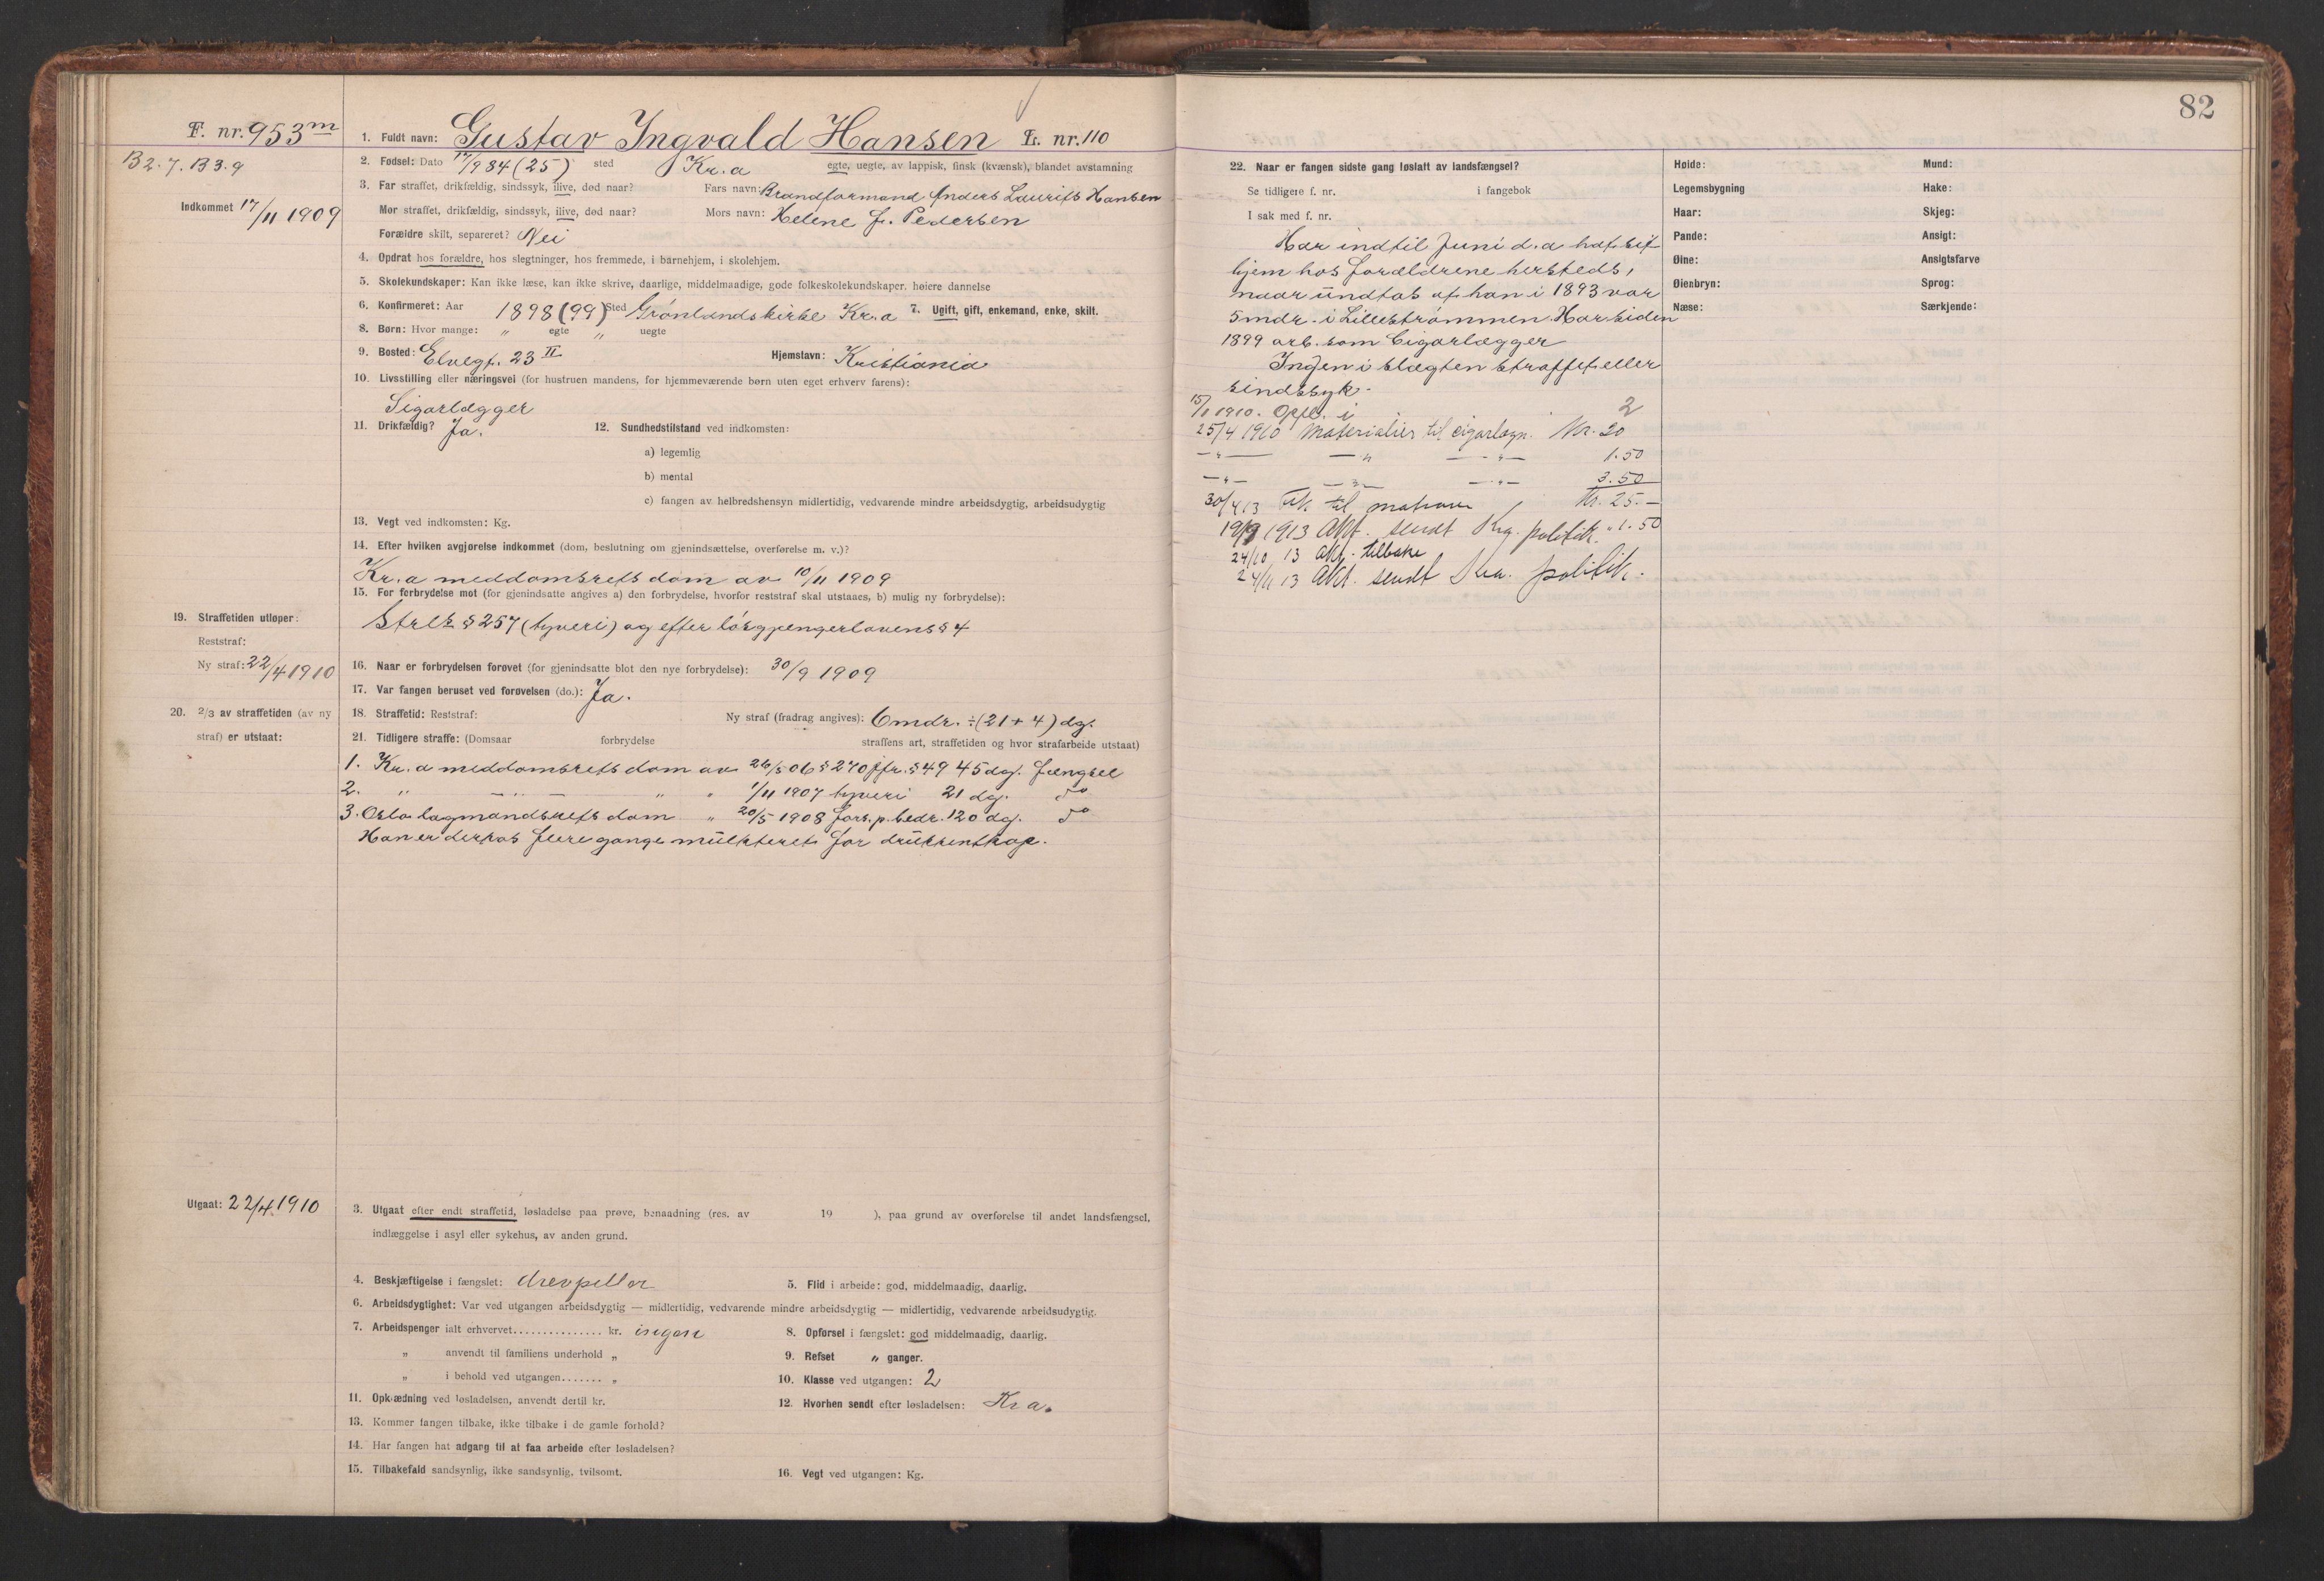 82
F. nr. 953 m
1. Fuldt navn: Gustav Ingvald Hansen L. nr. 110
B2.7. B3.9
2. Fødsel: Dato 17/9 84 (25) sted Kr.a egte, uegte, av lappisk, finsk (kvænsk), blandet avstamning
3. Far straffet, drikfældig, sindssyk, ilive, død naar? Fars navn: Brandformand Anders Laurits Hansen
Indkommet 17/11 1909
Mor straffet, drikfældig, sindssyk, ilive, død naar? Mors navn: Helene f. Pedersen
Forældre skilt, separeret? Nei
4. Opdrat hos forældre, hos slegtninger, hos fremmede, i barnehjem, i skolehjem.
5. Skolekundskaper: Kan ikke læse, kan ikke skrive, daarlige, middelmaadige, gode folkeskolekundskaper, høiere dannelse
6. Konfirmeret: Aar 1898 (99) Sted Grønlandskirke Kr.a 7. Ugift, gift, enkemand, enke, skilt.
8. Børn: Hvor mange: " egte " uegte
9. Bosted: Elvegt. 23 II Hjemstavn: Kristiania
10. Livsstilling eller næringsvei (for hustruen mandens, for hjemmeværende børn uten eget erhverv farens):
Sigarlægger
11. Drikfældig? Ja. 12. Sundhedstilstand ved indkomsten:
a) legemlig
b) mental
c) fangen av helbredshensyn midlertidig, vedvarende mindre arbeidsdygtig, arbeidsudygtig
13. Vegt ved indkomsten: Kg.
14. Efter hvilken avgjørelse indkommet (dom, beslutning om gjenindsættelse, overførelse m. v.)?
Kr.a meddomsrets dom av 10/11 1909
15. For forbrydelse mot (for gjenindsatte angives a) den forbrydelse, hvorfor reststraf skal utstaaes, b) mulig ny forbrydelse):
Strlk § 257 (tyveri) og efter løsgjængerlovens § 4
19. Straffetiden utløper:
Reststraf:
Ny straf: 22/4 1910
16. Naar er forbrydelsen forøvet (for gjenindsatte blot den nye forbrydelse): 30/9 1909
17. Var fangen beruset ved forøvelsen (do.): Ja.
20. 2/3 av straffetiden (av ny
straf) er utstaat:
18. Straffetid: Reststraf: Ny straf (fradrag angives): 6 mdr. ÷ (21 + 4) dg.
21. Tidligere straffe: (Domsaar forbrydelse straffens art, straffetiden og hvor strafarbeide utstaat)
1. Kr.a meddomsrets dom av 26/5 06 § 270 jfr. § 49 45 dg. fængsel
2. " — " — " " 1/11 1907 tyveri 21 dg. do
3. Oslo lagmandsrets dom " 20/5 1908 fors. p. bedr. 120 dg. do
Han er derhos flere gange mulkteret for drukkenskap.
Utgaat: 22/4 1910
3. Utgaat efter endt straffetid, løsladelse paa prøve, benaadning (res. av 19 ), paa grund av overførelse til andet landsfængsel,
indlæggelse i asyl eller sykehus, av anden grund.
4. Beskjæftigelse i fængslet: drevpiller 5. Flid i arbeide: god, middelmaadig, daarlig.
6. Arbeidsdygtighet: Var ved utgangen arbeidsdygtig — midlertidig, vedvarende mindre arbeidsdygtig — midlertidig, vedvarende arbeidsudygtig.
7. Arbeidspenger ialt erhvervet............... kr. ingen 8. Opførsel i fængslet: god middelmaadig, daarlig.
" anvendt til familiens underhold " 9. Refset " ganger.
" i behold ved utgangen....... " 10. Klasse ved utgangen: 2
11. Opklædning ved løsladelsen, anvendt dertil kr. 12. Hvorhen sendt efter løsladelsen: Kr a.
13. Kommer fangen tilbake, ikke tilbake i de gamle forhold?
14. Har fangen hat adgang til at faa arbeide efter løsladelsen?
15. Tilbakefald sandsynlig, ikke sandsynlig, tvilsomt. 16. Vegt ved utgangen: Kg.
22. Naar er fangen sidste gang løslatt av landsfængsel?
Se tidligere f. nr. i fangebok
I sak med f. nr.
Har indtil Juni d.a hat sit
hjem hos forældrene hersteds,
naar undtas at han i 1893 var
5 mdr. i Lillestrømmen. Har siden
1899 arb. som Cigarlægger
Ingen i slægten straffet eller
sindssyk.
15/1 1910. Opfl. i 2
25/4 1910 Materialier til cigarlægn. Kr. 20
— " — — " — — " — 1.50
— " — — " — — " — 3.50
30/4 13 til Kr. 25.—
19/9 1913 Akt. sendt Kra. politik. " 1.50
24/10 13 akt. tilbake
24/11 13 Akt. sendt Kra. politik.
Høide: Mund:
Legemsbygning Hake:
Haar: Skjeg:
Pande: Ansigt:
Øine: Ansigtsfarve
Øienbryn: Sprog:
Næse: Særkjende: